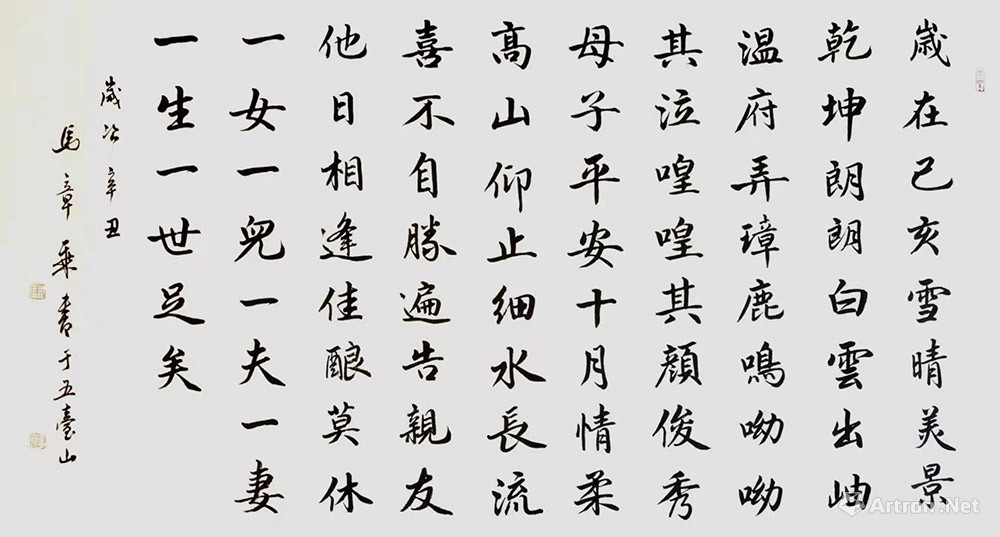 歳在己亥雪晴美景
乾坤朗朗白雲出岫
温府弄璋鹿鳴呦呦
其泣喤喤其顔俊秀
母子平安十月情柔
高山仰止細水長流
喜不自勝遍告親友
他日相逢佳釀莫休
一女一兒一夫一妻
一生一世足矣
歲次辛丑
馬章乗書于五臺山
Artron.Net